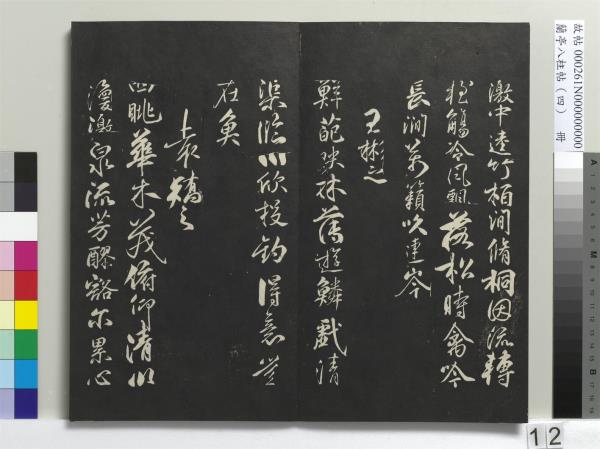 激中逵竹栢澗脩桐因流轉
輕觴冷風飄落松時禽吟
長澗萬籟吹連岑
王彬之
鮮葩映林薄遊鱗戲清
渠臨川欣投釣得意豈
在魚
袁嶠之
四眺華木茂俯仰清川
渙激泉流芳醪豁尓累心
故帖 000261N000000000
蘭亭八柱帖（四） 冊
12